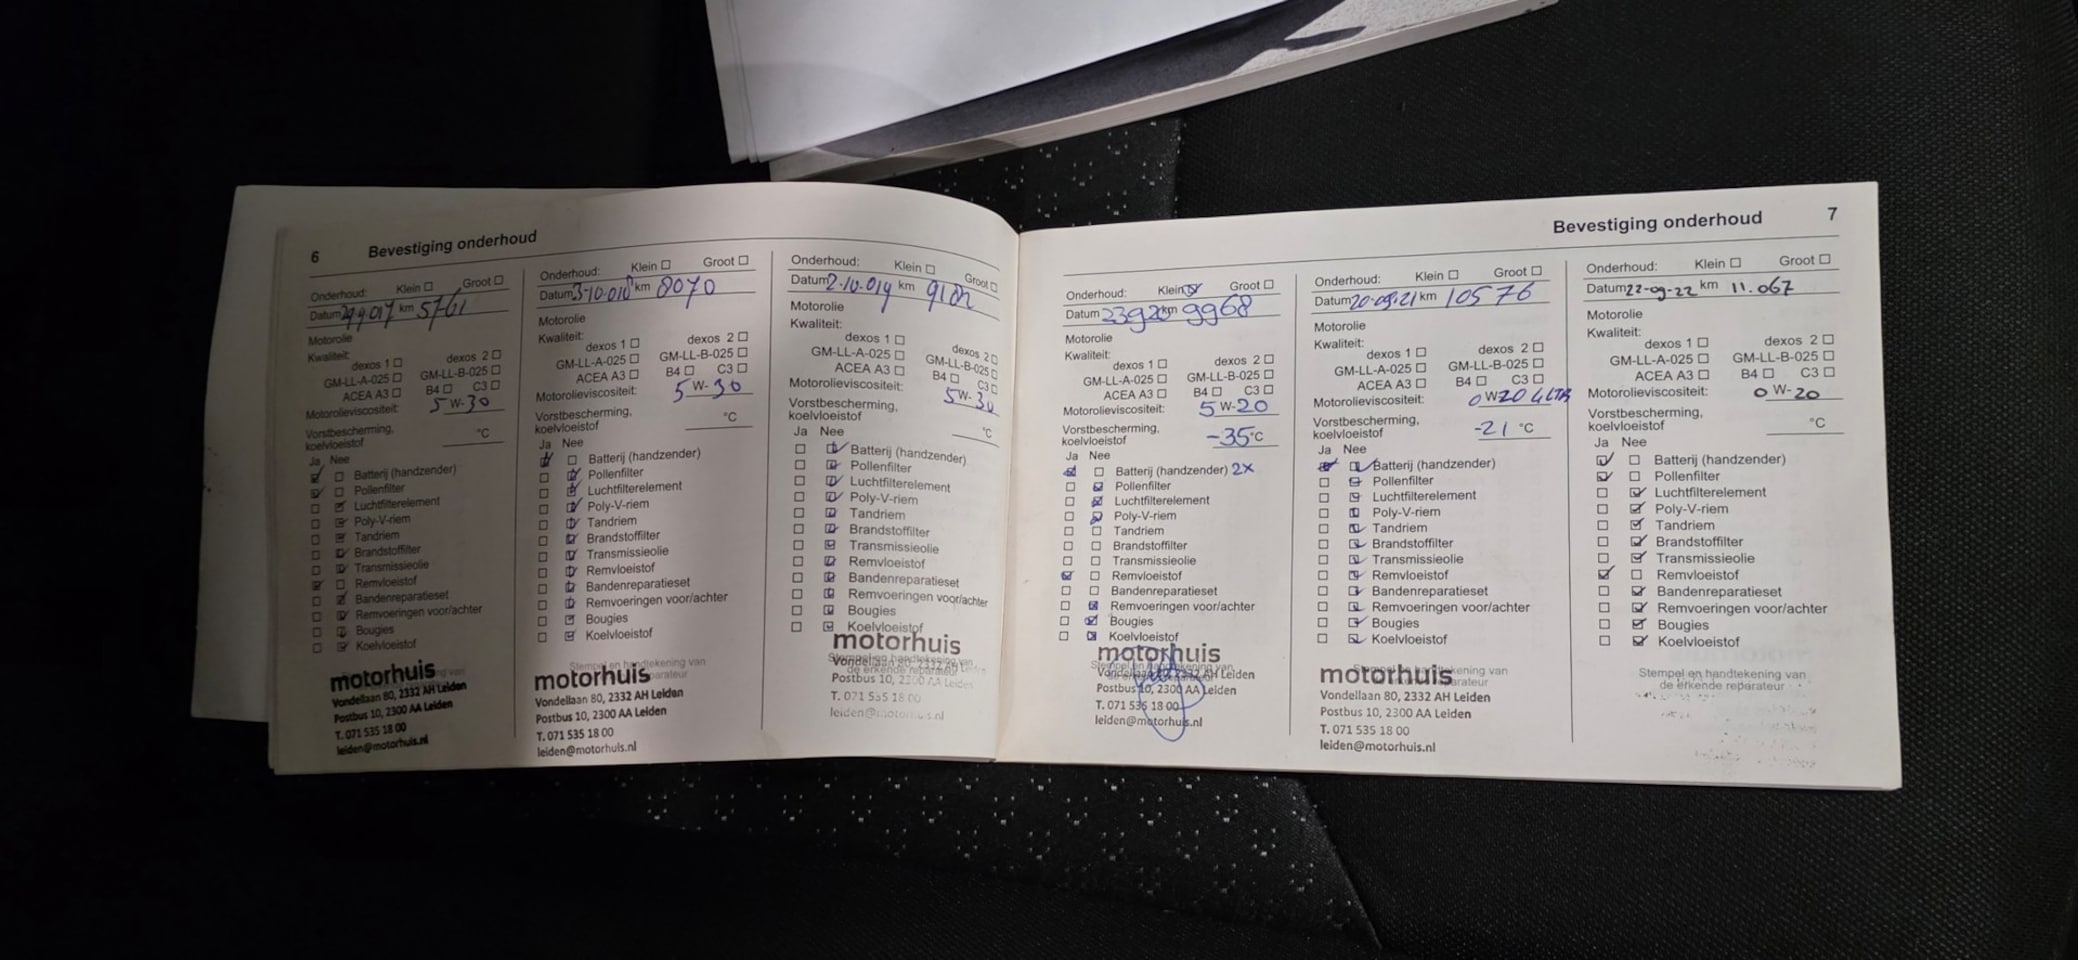 6 Bevestiging onderhoud
Onderhoud: Klein Groot
Datum km 5761
Motorolie
Kwaliteit:
dexos 1 dexos 2
GM-LL-A-025 GM-LL-B-025
ACEA A3 B4 C3
Motorolieviscositeit: 5 W-30
Vorstbescherming,
koelvloeistof °C
Ja Nee
Batterij (handzender)
Pollenfilter
Luchtfilterelement
Poly-V-riem
Tandriem
Brandstoffilter
Transmissieolie
Remvloeistof
Bandenreparatieset
Remvoeringen voor/achter
Bougies
Koelvloeistof
motorhuis
Vondellaan 80, 2332 AH Leiden
Postbus 10, 2300 AA Leiden
T. 071 535 18 00
leiden@motorhuis.nl
Onderhoud: Klein Groot
Datum 3-10-018 km 8070
Motorolie
Kwaliteit:
dexos 1 dexos 2
GM-LL-A-025 GM-LL-B-025
ACEA A3 B4 C3
5 W-30
Vorstbescherming,
koelvloeistof °C
Ja Nee
Batterij (handzender)
Pollenfilter
Luchtfilterelement
Poly-V-riem
Tandriem
Brandstoffilter
Transmissieolie
Remvloeistof
Bandenreparatieset
Remvoeringen voor/achter
Bougies
Koelvloeistof
Stempel en handtekening van
motorhuis
Vondellaan 80, 2332 AH Leiden
Postbus 10, 2300 AA Leiden
T. 071 535 18 00
leiden@motorhuis.nl
Onderhoud: Klein Groot
Datum 2-10-019 km
Motorolie
Kwaliteit:
dexos 1 dexos 2
GM-LL-A-025 GM-LL-B-025
ACEA A3 B4 C3
Motorolieviscositeit: 5 W-30
Vorstbescherming,
koelvloeistof °C
Ja Nee
Batterij (handzender)
Pollenfilter
Luchtfilterelement
Poly-V-riem
Tandriem
Brandstoffilter
Transmissieolie
Remvloeistof
Bandenreparatieset
Remvoeringen voor/achter
Bougies
Koelvloeistof
motorhuis
Stempel en handtekening van
Vondellaan 80, 2332 AH Leiden
de erkende reparateur
Postbus 10, 2300 AA Leiden
T. 071 535 18 00
leiden@motorhuis.nl
Bevestiging onderhoud 7
Onderhoud: Klein Groot
Datum 23920 km 9968
Motorolie
Kwaliteit:
dexos 1 dexos 2
GM-LL-A-025 GM-LL-B-025
ACEA A3 B4 C3
Motorolieviscositeit: 5 W-20
Vorstbescherming,
koelvloeistof -35 °C
Ja Nee
Batterij (handzender) 2x
Pollenfilter
Luchtfilterelement
Poly-V-riem
Tandriem
Brandstoffilter
Transmissieolie
Remvloeistof
Bandenreparatieset
Remvoeringen voor/achter
Bougies
Koelvloeistof
motorhuis
Stempel en handtekening van
Vondellaan 80, 2332 AH Leiden
Postbus 10, 2300 AA Leiden
T. 071 535 18 00
leiden@motorhuis.nl
Onderhoud: Klein Groot
Datum 20-09-21 km 10576
Motorolie
Kwaliteit:
dexos 1 dexos 2
GM-LL-A-025 GM-LL-B-025
ACEA A3 B4 C3
Motorolieviscositeit: 0 W-20 4 LTR
Vorstbescherming,
koelvloeistof -21 °C
Ja Nee
Batterij (handzender)
Pollenfilter
Luchtfilterelement
Poly-V-riem
Tandriem
Brandstoffilter
Transmissieolie
Remvloeistof
Bandenreparatieset
Remvoeringen voor/achter
Bougies
Koelvloeistof
motorhuis
Vondellaan 80, 2332 AH Leiden
Postbus 10, 2300 AA Leiden
T. 071 535 18 00
leiden@motorhuis.nl
Onderhoud: Klein Groot
Datum 22-09-22 km 11.067
Motorolie
Kwaliteit:
dexos 1 dexos 2
GM-LL-A-025 GM-LL-B-025
ACEA A3 B4 C3
Motorolieviscositeit: 0 W-20
Vorstbescherming,
koelvloeistof °C
Ja Nee
Batterij (handzender)
Pollenfilter
Luchtfilterelement
Poly-V-riem
Tandriem
Brandstoffilter
Transmissieolie
Remvloeistof
Bandenreparatieset
Remvoeringen voor/achter
Bougies
Koelvloeistof
Stempel en handtekening van
de erkende reparateur